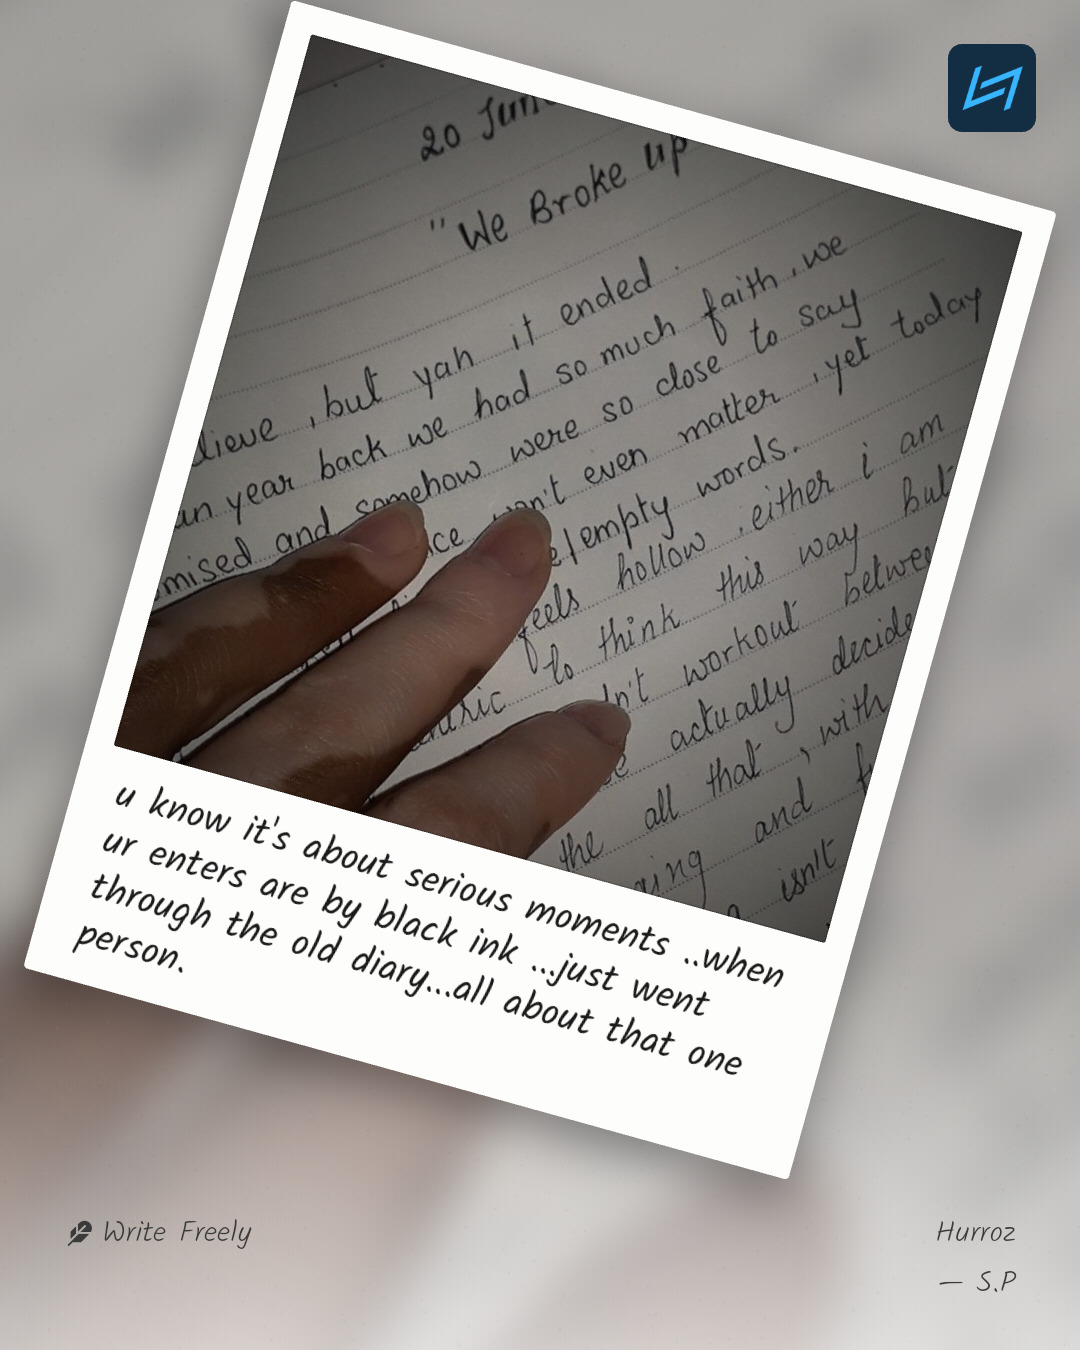 20 June
"We Broke up
lieve , but yah it ended .
an year back we had so much faith , we
mised and somehow were so close to say
ice won't even matter , yet today
/empty words.
feels hollow . either i am
to think this way but
n't workout between
actually decide
the all that , with
and
isn't
u know it's about serious moments ..when
ur enters are by black ink ...just went
through the old diary...all about that one
person.
Write Freely
Hurroz
— S.P